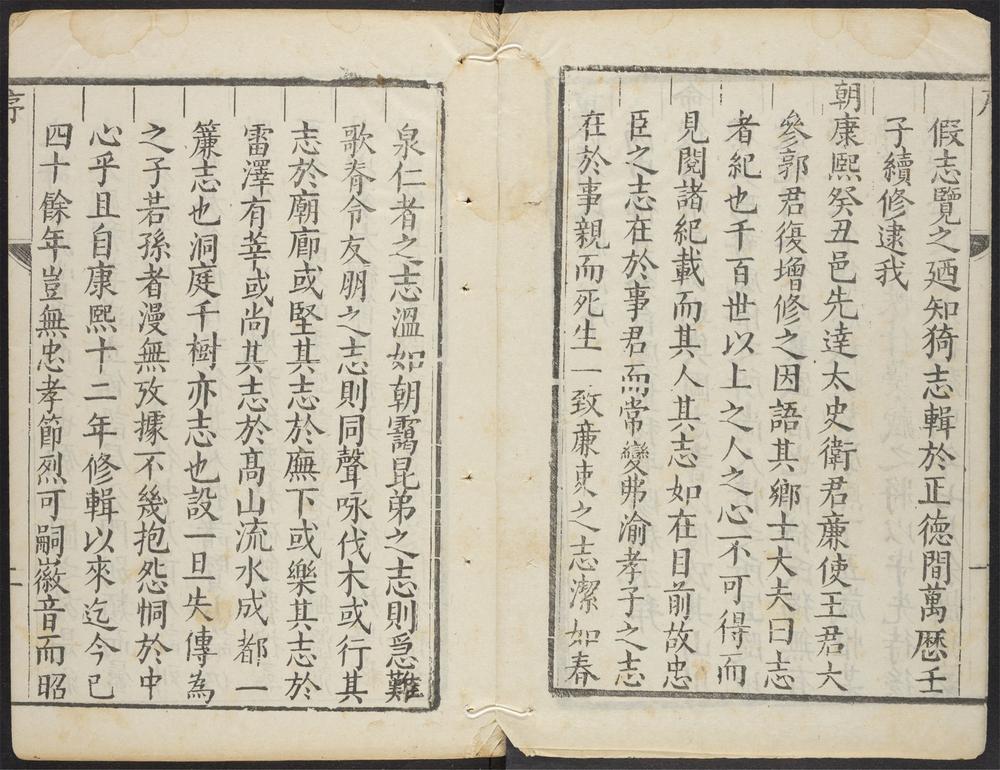 假志覽之廼知猗志輯於正德間萬曆壬
子續修逮我
朝康熙癸丑邑先達太史衛君亷使王君大
參郭君復增修之因語其鄉士大夫曰志
者紀也千百世以上之人之心不可得而
見閱諸紀載而其人其志如在目前故忠
臣之志在於事君而常變弗渝孝子之志
在於事親而死生一致亷吏之志潔如春
泉仁者之志溫如朝靄昆弟之志則急難
歌脊令友朋之志則同聲咏伐木或行其
志於廟廊或堅其志於廡下或樂其志於
雷澤有莘或尚其志於髙山流水成都一
簾志也洞庭千樹亦志也設一旦失傳為
之子若孫者漫無攷據不幾抱怨恫於中
心乎且自康熙十二年修輯以來迄今已
四十餘年豈無忠孝節烈可嗣徽音而昭
序
二
一